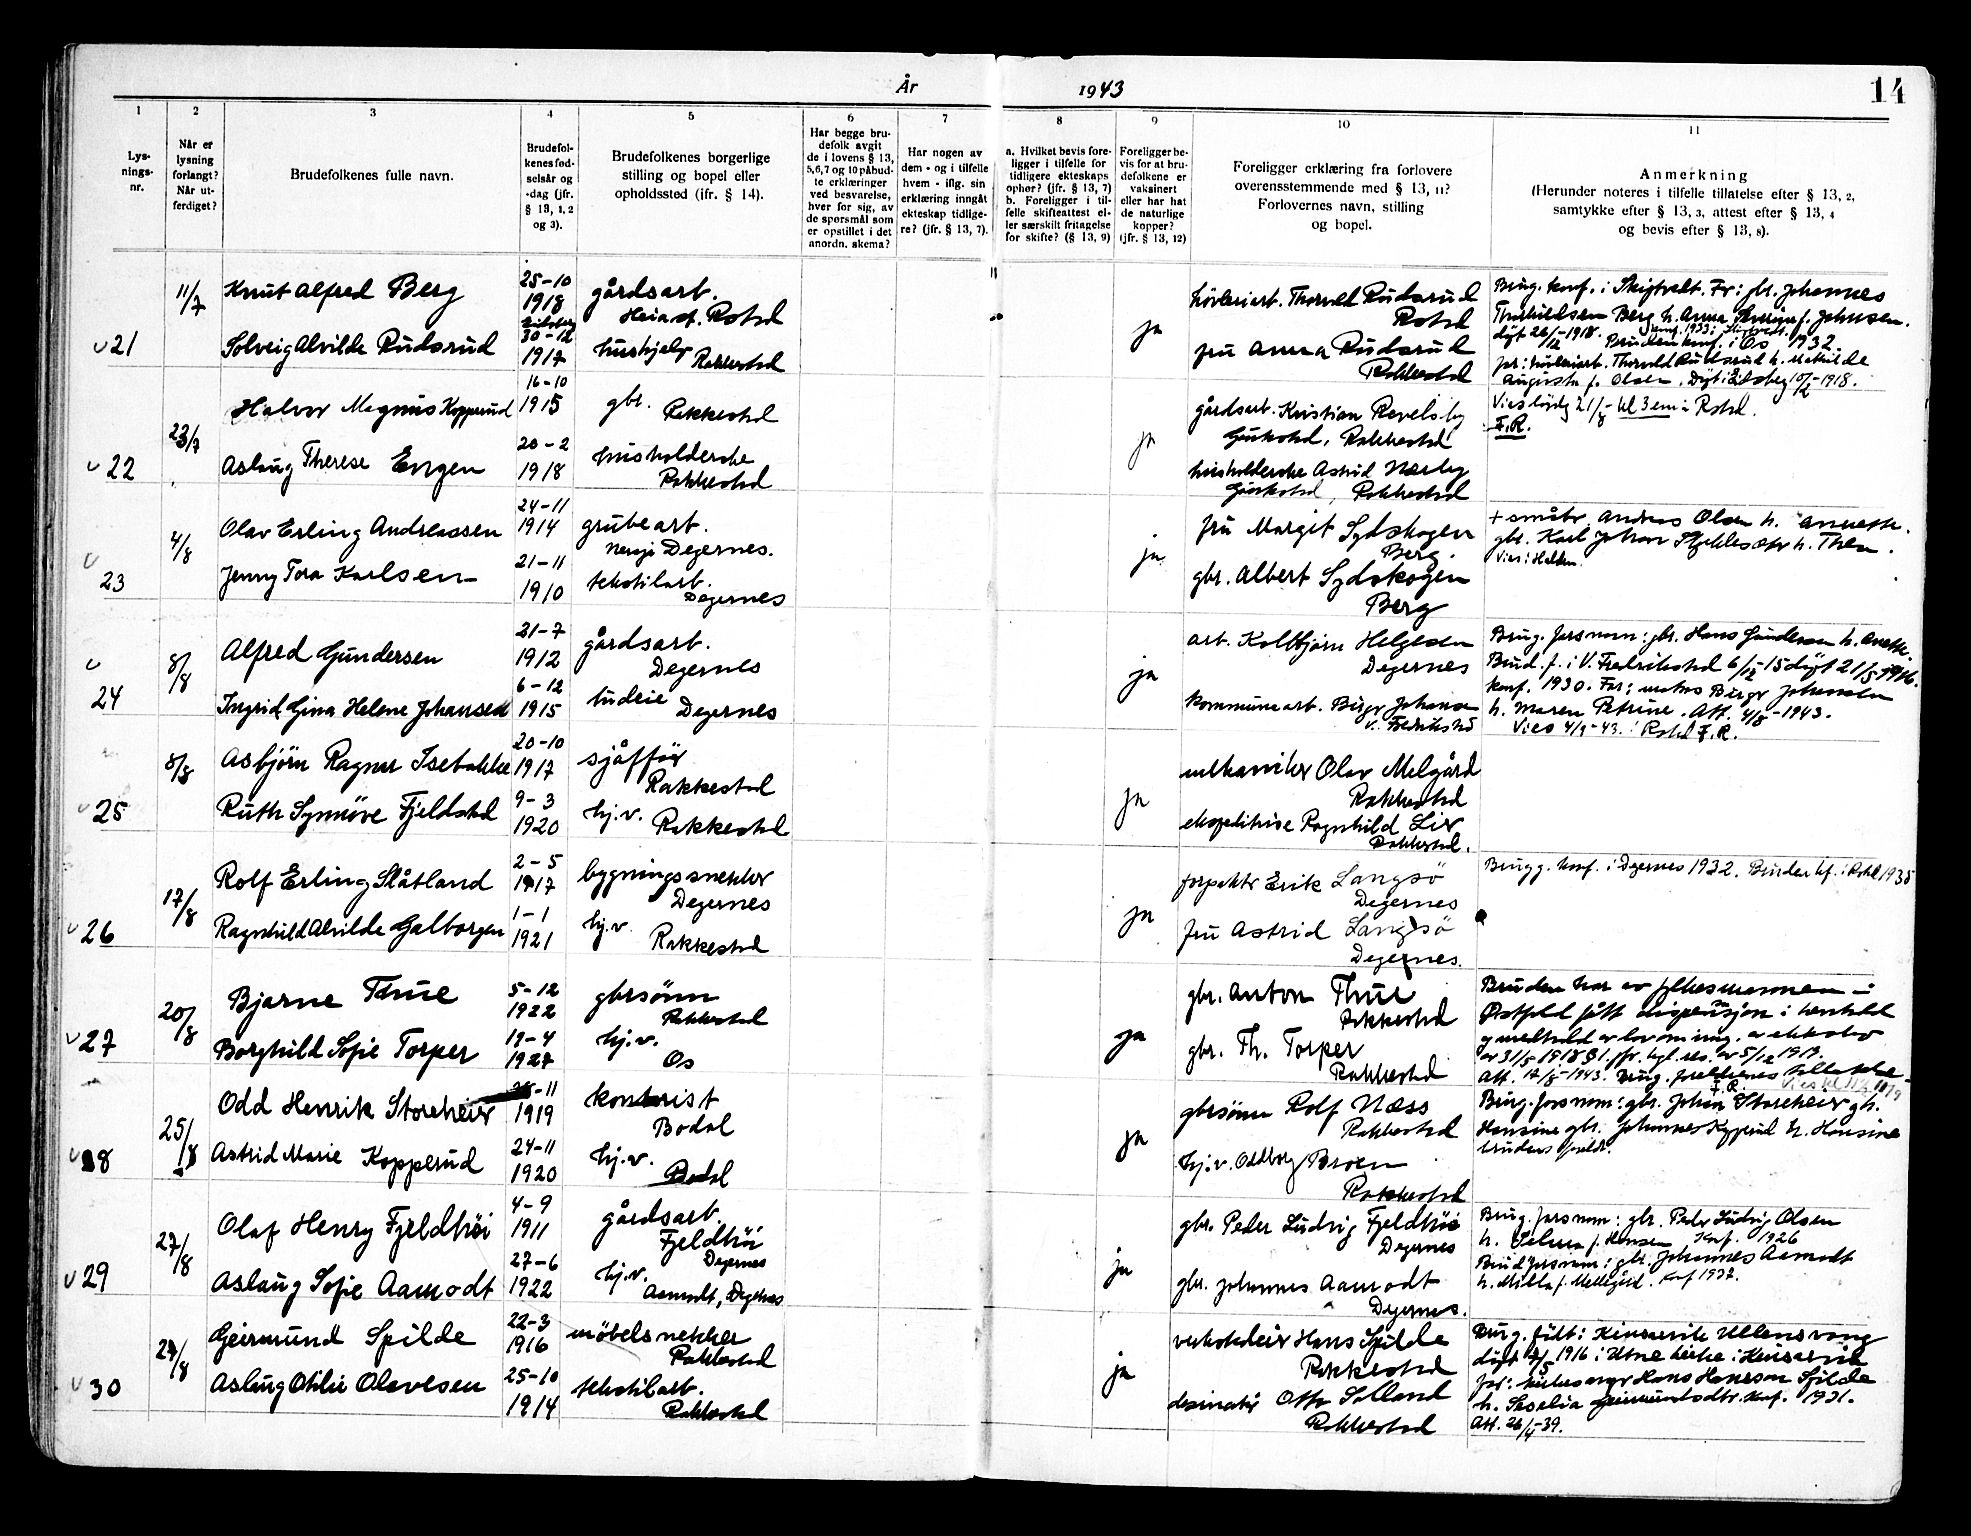 År
1943
14
1
2
3
4
5
6
7
8
9
10
11
Lys-
nings-
nr.
Når er
lysning
forlangt?
Når ut-
ferdiget?
Brudefolkenes fulle navn.
Brudefol-
kenes fød-
selsår og
-dag (jfr.
§ 13, 1, 2
og 3).
Brudefolkenes borgerlige
stilling og bopel eller
opholdssted (jfr. § 14).
Har begge bru-
defolk avgit
de i lovens § 13,
5,6,7 og 10 påbud-
te erklæringer
ved besvarelse,
hver for sig, av
de spørsmål som
er opstillet i det
anordn. skema?
Har nogen av
dem - og i tilfelle
hvem - iflg. sin
erklæring inngått
ekteskap tidlige-
re? (jfr. § 13, 7).
a. Hvilket bevis fore-
ligger i tilfelle for
tidligere ekteskaps
ophør? (jfr. § 13, 7)
b. Foreligger i til-
felle skifteattest el-
ler særskilt fritagelse
for skifte? (§ 13, 9)
Foreligger be-
vis for at bru-
defolkene er
vaksinert
eller har hat
de naturlige
kopper?
(jfr. § 13, 12)
Foreligger erklæring fra forlovere
overensstemmende med § 13, 11?
Forlovernes navn, stilling
og bopel.
Anmerkning
(Herunder noteres i tilfelle tillatelse efter § 13, 2,
samtykke efter § 13, 3, attest efter § 13, 4
og bevis efter § 13, 8).
21
11/7
Knut Alfred Berg
25-10
1918
gårdsart.
Heia st. Rakkestad
Solveig Alvilde Rudsrud
30-12
1917
hushjelp
Rakkestad
ja
høvleriarb. Thorvald Rudsrud
Rakkestad
fru Anna Rudsrud
Rakkestad
Brug. konf. i Skiptvedt. Far: gbr. Johannes
Thorkildsen Berg h. Anna Severine f. Johnsen.
døpt 26/12-1918. Bruden konf. i Os 1932.
far: høvleriarb. Thorvald Rudsrud h. Mathilde
Augusta f. Olsen. Døpt i Eidsberg 10/2-1918.
22
23/7
Halvor Magnus Kopperud
16-10
1915
gbr. Rakkestad
Aslaug Therese Engen
20-2
1918
husholderske
Rakkestad
ja
gårdsarb. Kristian Revelsby
Rakkestad
husholderske Astrid Nærby
Rakkestad
Vies lørdag 21/8 kl 3 em i Rakd.
F.R.
23
4/8
Olav Erling Andreassen
24-11
1914
grubearb.
Degernes.
Jenny Tora Karlsen
21-11
1910
tekstilarb.
Degernes
ja
fru Margit Sydskogen
Berg.
gbr. Albert Sydskogen
Berg
+ småbr. Andreas Olsen h. Annette.
gbr. Karl Johan h. Thea.
Vies i Halden.
24
8/8
Alfred Gundersen
21-7
1912
gårdsarb.
Degernes
Ingrid Gina Helene Johansen
6-12
1915
budeie
Degernes
ja
arb. Kolbjørn Helgesen
Degernes
kommunearb. Birger Johansen
V. Fredrikstad
Brug. fars navn: gbr. Hans Gundersen h. Anette.
Brud. f. i V. Fredrikstad 6/12-15 døpt 21/5-1916.
konf. 1930. Far: Birger Johansen
h. Maren Petrine. Att. 4/8-1943.
Vies 4/9-43. i Rakd F.R.
25
8/8
Asbjörn Ragnar Isebakke
20-10
1917
sjåfför
Rakkestad
Ruth Synnöve Fjeldstad
9-3
1920
hj.v. Rakkestad
ja
mekaniker Olav Melgård
Rakkestad
ekspeditrise Ragnhild Lie
Rakkestad.
26
17/8
Rolf Erling Slåtland
2-5
1917
bygningssnekker
Degernes
Ragnhild Alvilde Galborgen
1-1
1921
hj.v.
Rakkestad
ja
forpakter Erik Langsö
Degernes
fru Astrid Langsö
Degernes.
Brugg. konf. i Degernes 1932. Bruden kf. i Rakd 1935
27
20/8
Bjarne Thue
5-12
1922
gbrsönn
Rakkestad
Borghild Sofie Torper
19-4
1927
hj.v.
Os
ja
gbr. Anton Thue
Rakkestad
gbr. Th. Torper
Rakkestad
Bruden har av fylkesmannen i
Östfold fått dispensasjon i henhold
av 31/5 1918 § 1. jfr. kgl. res. av 5/12 1919.
Att. 17/8-1943. Brug. foreldrenes tillatelse
F.R.
28
25/8
Odd Henrik Storeheier
-11
1919
kontorist
Bodal
Astrid Marie Kopperud
24-11
1920
hj.v.
Bodal
ja
gbrsönn Rolf Næss
Rakkestad
hj.v. Oddborg Broen
Rakkestad
Brug. fars navn: gbr. Johan Storeheier gh.
Hansine gbr. Johannes Kopperud h. Hansine
brudens foreldr.
29
27/8
Olaf Henry Fjeldhöi
4-9
1911
gårdsarb.
Fjeldhöi
Degernes
Aslaug Sofie Aamodt
27-6
1922
hj.v.
Aamodt, Degernes
ja
gbr. Peder Ludvig Fjeldhöi
Degernes
gbr. Johannes Aamodt
Degernes.
Brug. fars navn: gbr. Peder Ludvig Olsen
h. Selma f. Hansen Konf. 1926
Brud fars navn: gbr. Johannes Aamodt
h. Milla f. Mellegård. konf 1937.
30
27/8
Geirmund Spilde
22-3
1916
möbelsnekker
Rakkestad
Aslaug Otilie Olavesen
25-10
1914
tekstilarb.
Rakkestad
ja
verkseier Hans Spilde
Rakkestad
desinatör Otto Solland
Rakkestad
Brug. födt: Kinsarvik Ullensvang
döpt 1916 i Utne kirke i Kinsarvik
far: kirkesanger Hans Hanson Spilde
h. Geirmundsdtr. konf. 1931.
Att. 26/4-39.